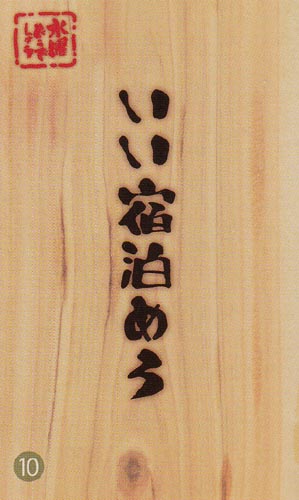 水曜
どうで
しょう
いい宿泊めろ
10